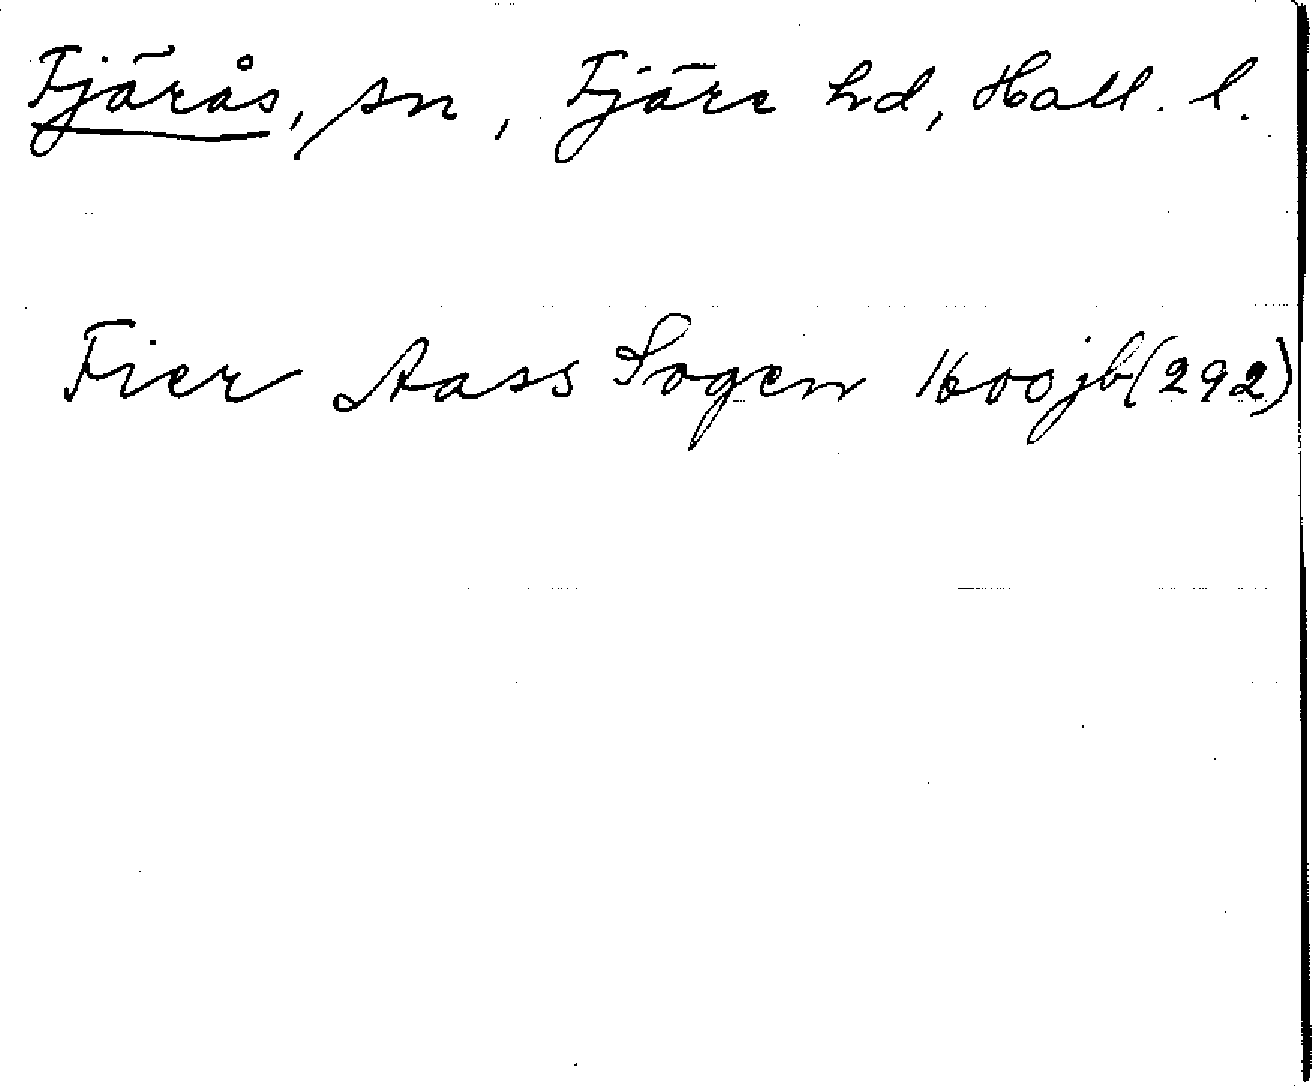 Fjärås, sn, Fjäre hd, Hall. l.
Fier Aass Sogen 1600 jb (292)